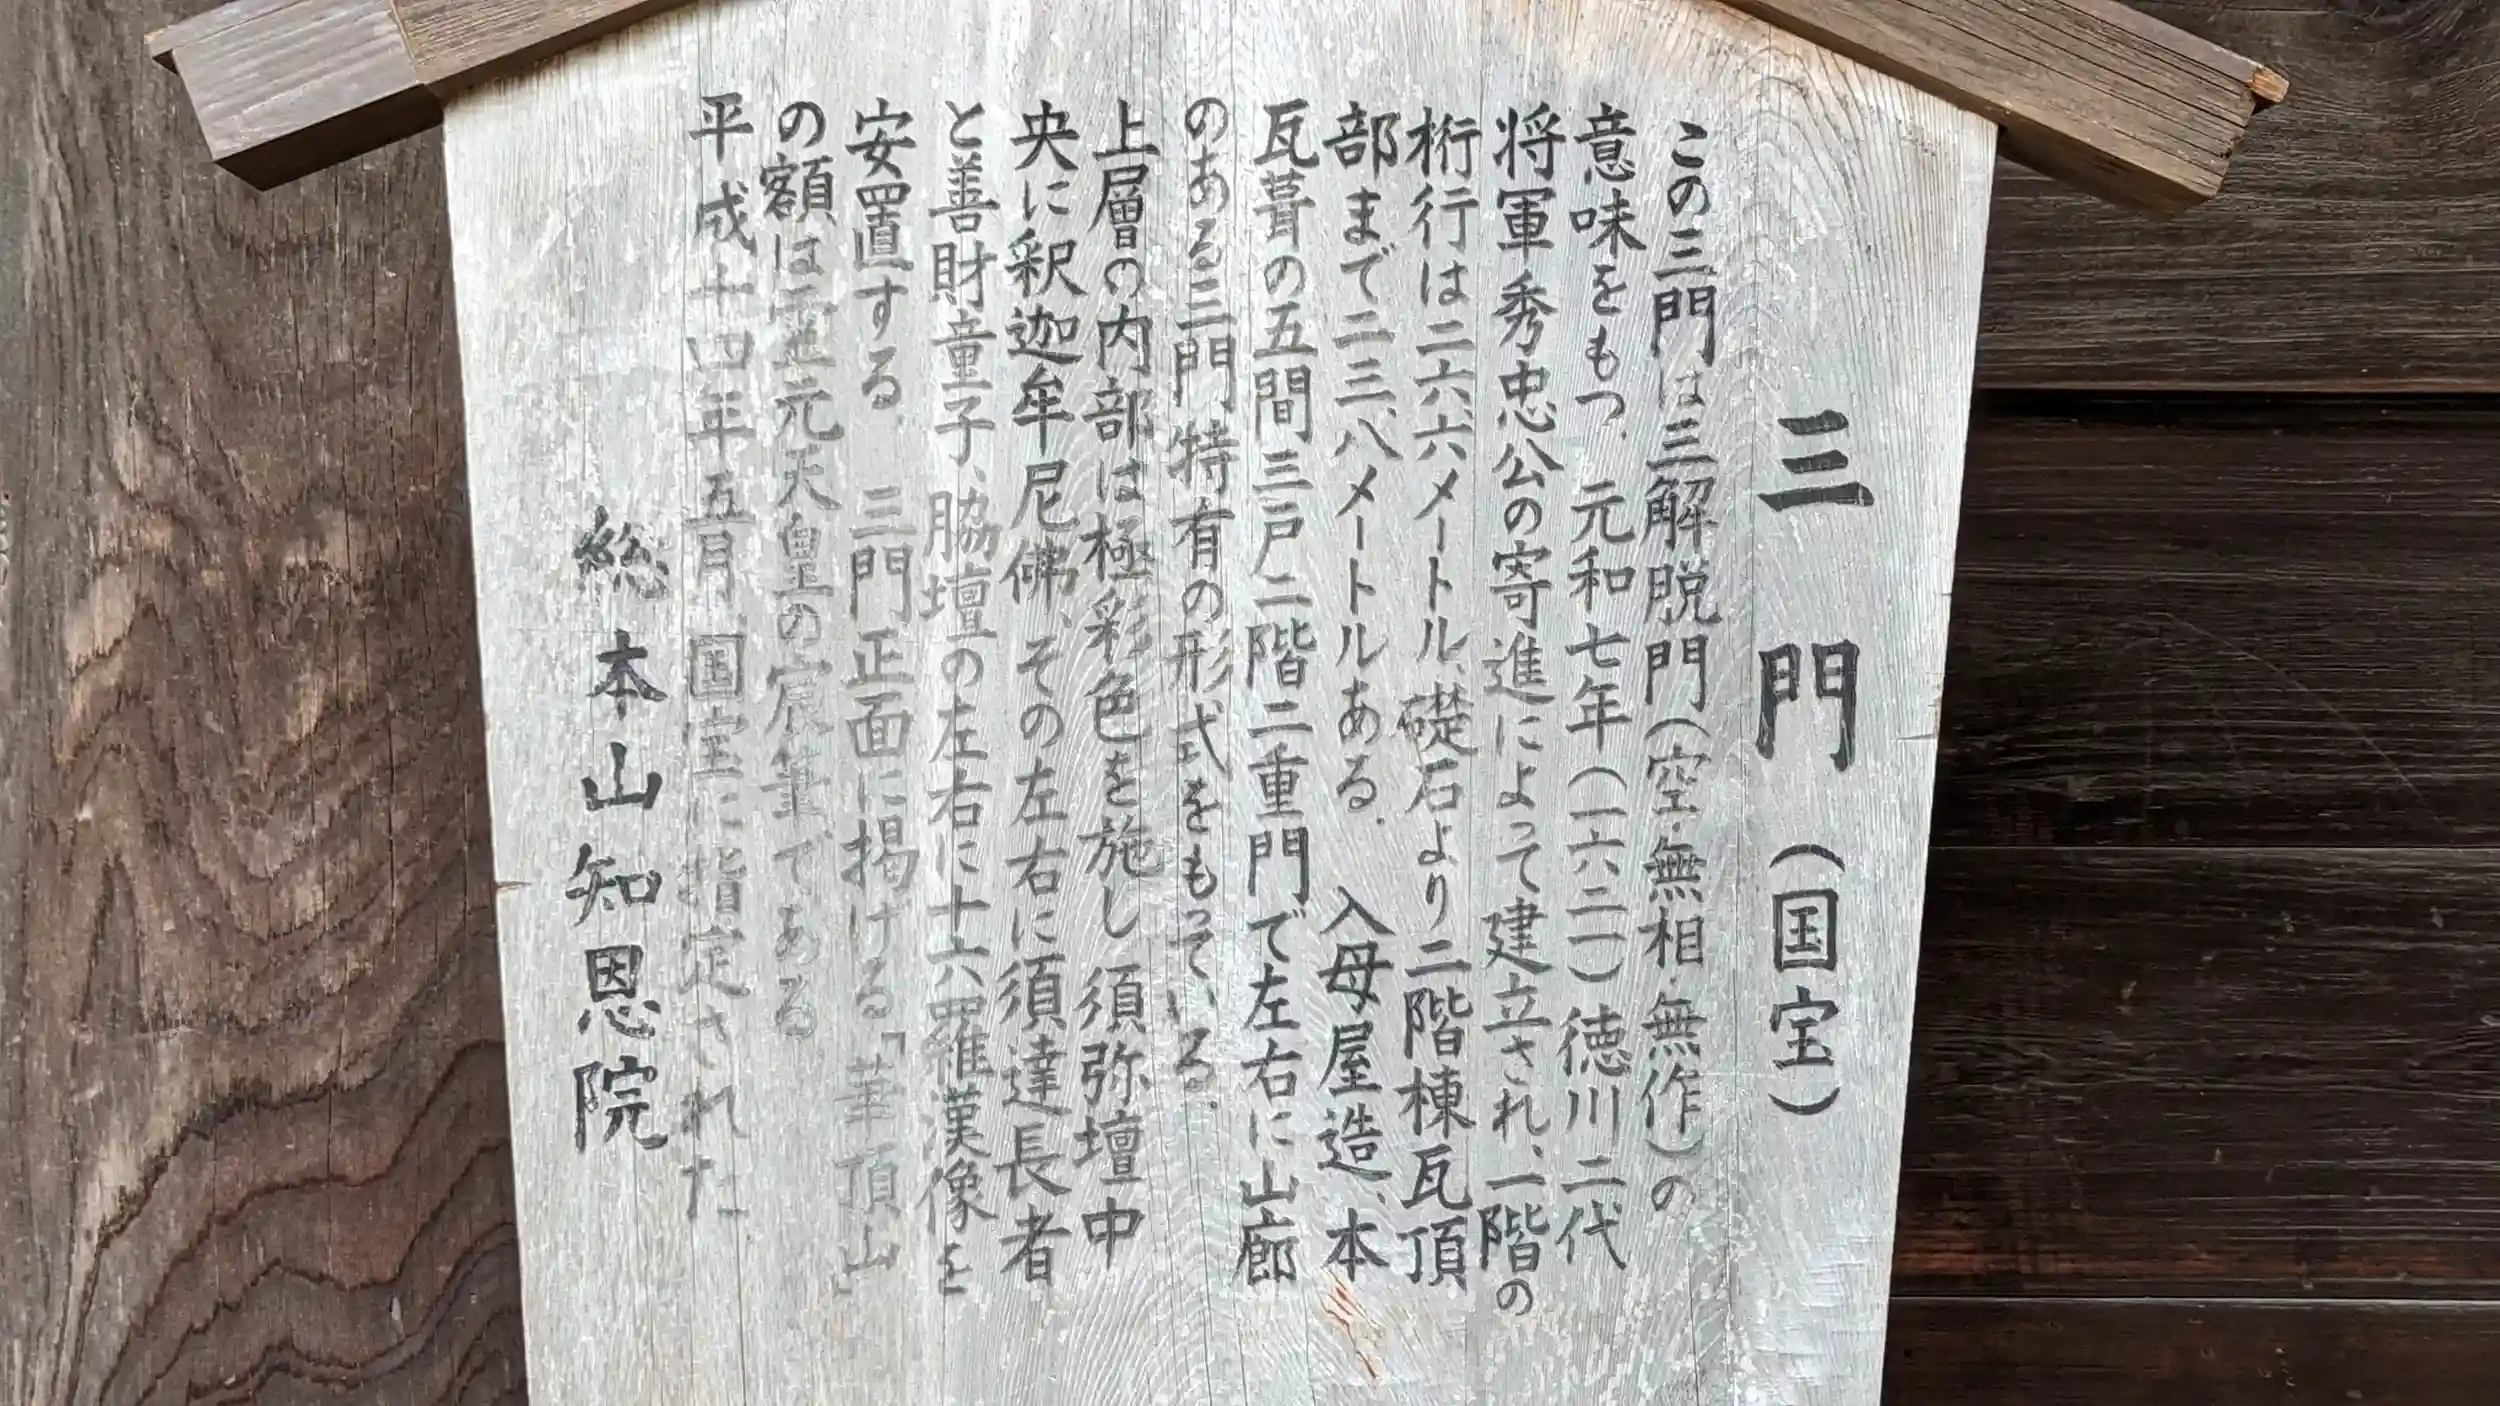 三門（国宝）
この三門は三解脱門（空・無相・無作）の
意味をもつ。元和七年（一六二一）徳川二代
将軍秀忠公の寄進によって建立され、一階の
桁行は二六、六メートル、礎石より二階棟瓦頂
部まで二三、八メートルある。入母屋造、本
瓦葺の五間三戸二階二重門で左右に山廊
のある三門特有の形式をもっている。
上層の内部は極彩色を施し須弥壇中
央に釈迦牟尼佛、その左右に須達長者
と善財童子、脇壇の左右に十六羅漢像を
安置する。三門正面に掲ける「華頂山」
の額は霊元天皇の宸筆である
平成十四年五月国宝に指定された
総本山知恩院